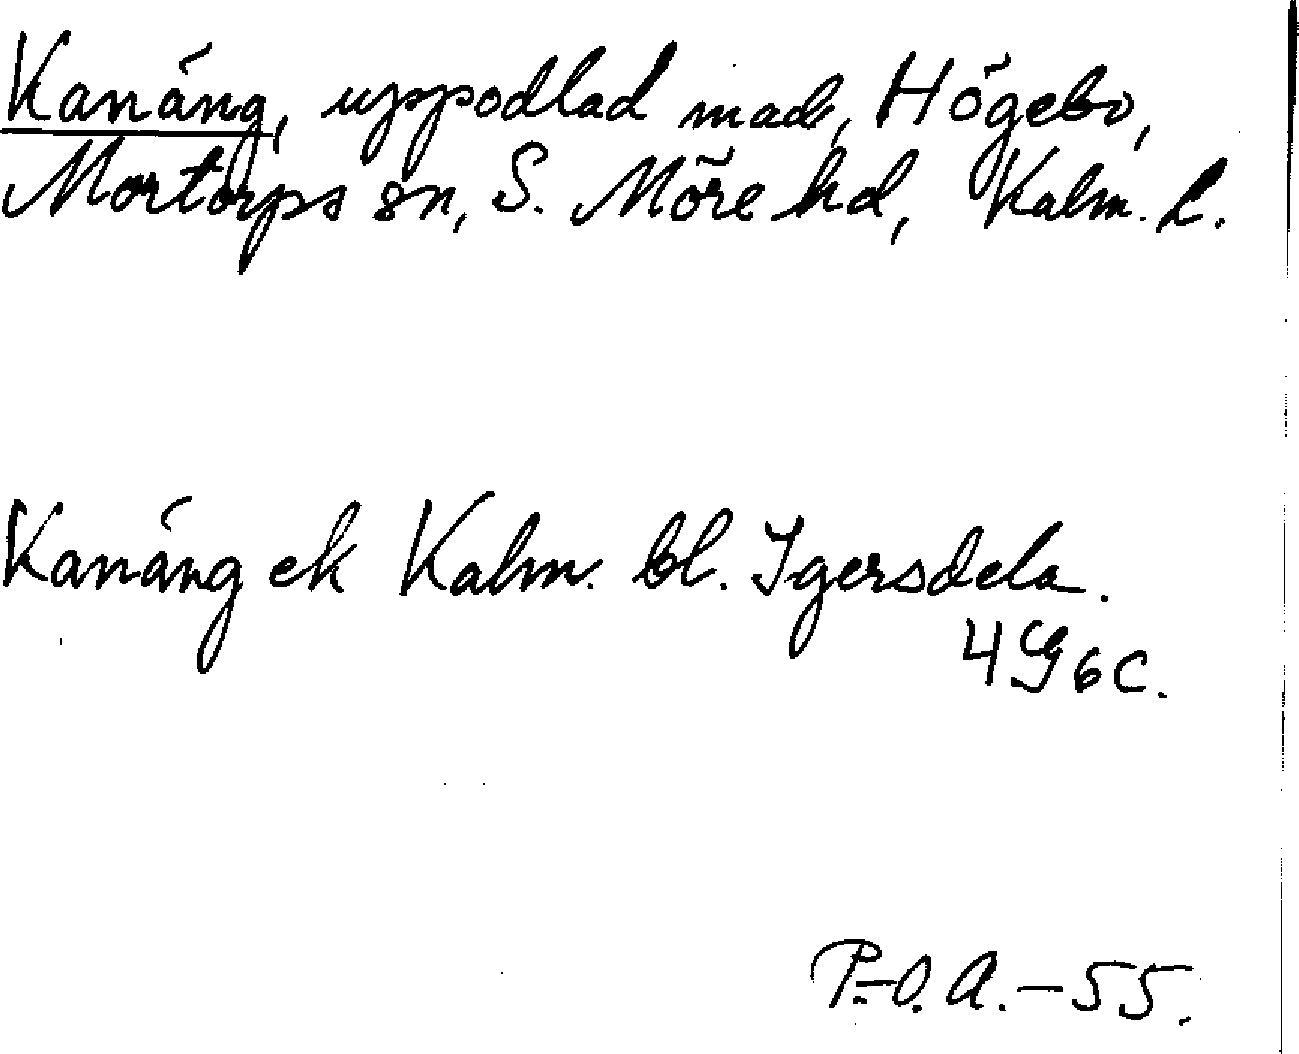 Kanäng, uppodlad mad, Högebo,
Mortorps sn, S. Möre hd, Kalm. l.
Kanäng ek Kalm. bl. Igersdela.
4G6c.
P.-O. A. - 55.